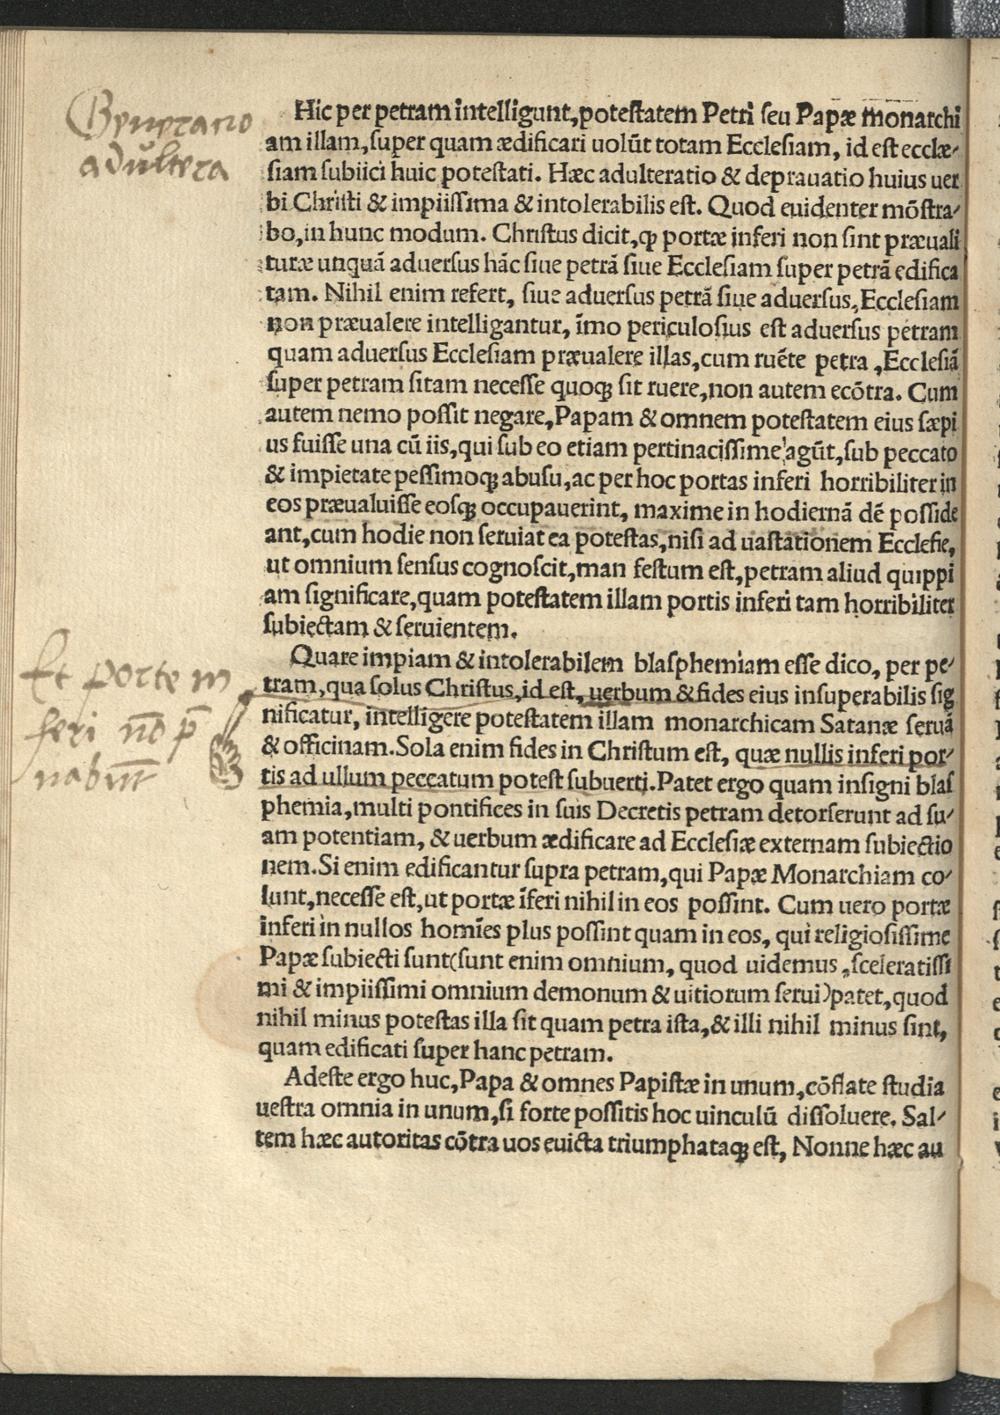 Generatio
adultera
Hic per petram intelligunt,potestatem Petri seu Papæ monarchi
am illam,super quam ædificari uolūt totam Ecclesiam, id est ecclæ-
siam subiici huic potestati. Hæc adulteratio & deprauatio huius uer
bi Christi & impiissima & intolerabilis est. Quod euidenter mōstra-
bo,in hunc modum. Christus dicit,ꝙ portæ inferi non sint præuali
turæ unquā aduersus hāc siue petrā siue Ecclesiam super petrā edifica
tam. Nihil enim refert, siue aduersus petrā siue aduersus,Ecclesiam
non præualere intelligantur, īmo periculosius est aduersus petram
quam aduersus Ecclesiam præualere illas,cum ruēte petra ,Ecclesiā
super petram sitam necesse quoqꝫ sit ruere,non autem ecōtra. Cum
autem nemo possit negare,Papam & omnem potestatem eius sæpi
us fuisse una cū iis,qui sub eo etiam pertinacissime agūt,sub peccato
& impietate pessimoqꝫ abusu,ac per hoc portas inferi horribiliter in
eos præualuisse eosqꝫ occupauerint, maxime in hodiernā dē posside
ant,cum hodie non seruiat ea potestas,nisi ad uastationem Ecclesie,
ut omnium sensus cognoscit,man festum est,petram aliud quippi
am significare,quam potestatem illam portis inferi tam horribiliter
subiectam & seruientem.
Quare impiam & intolerabilem blasphemiam esse dico, per pe-
Et porte in
tram,qua solus Christus,id est, uerbum & fides eius insuperabilis sig
feri nō p̄
nificatur, intelligere potestatem illam monarchicam Satanæ seruā
& officinam.Sola enim fides in Christum est, quæ nullis inferi por-
tis ad ullum peccatum potest subuerti.Patet ergo quam insigni blas
phemia,multi pontifices in suis Decretis petram detorserunt ad su-
am potentiam, & uerbum ædificare ad Ecclesiæ externam subiectio
nem.Si enim edificantur supra petram,qui Papæ Monarchiam co-
lunt,necesse est,ut portæ īferi nihil in eos possint. Cum uero portæ
inferi in nullos homīes plus possint quam in eos, qui religiosissime
Papæ subiecti sunt(sunt enim omnium, quod uidemus ,sceleratissi
mi & impiissimi omnium demonum & uitiorum serui)patet,quod
nihil minus potestas illa sit quam petra ista,& illi nihil minus sint,
quam edificati super hanc petram.
Adeste ergo huc,Papa & omnes Papistæ in unum,cōflate studia
uestra omnia in unum,si forte possitis hoc uinculū dissoluere. Sal-
tem hæc autoritas cōtra uos euicta triumphataqꝫ est, Nonne hæc au